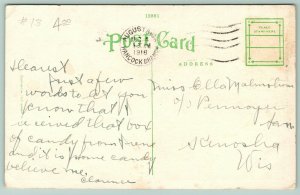 #13 4.00
15881
Post Card
ADDRESS
PLACE
STAMP HERE
AUGUST
1916
HANCOCK
Dearest
Just a few
words to let you
know that I
received that box
of candy from friend
and it is some candy
believe me.
Clarence
Miss Ella Malmstrom
c/o Pennoyer
San
Kenosha
Wis